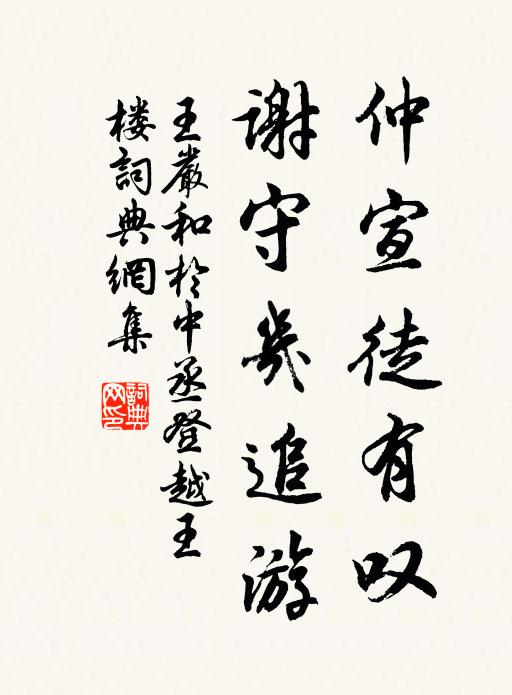 仲宣徒有叹
谢守几追游
王嚴和於中丞登越王
楼詞典網集
詞典网印